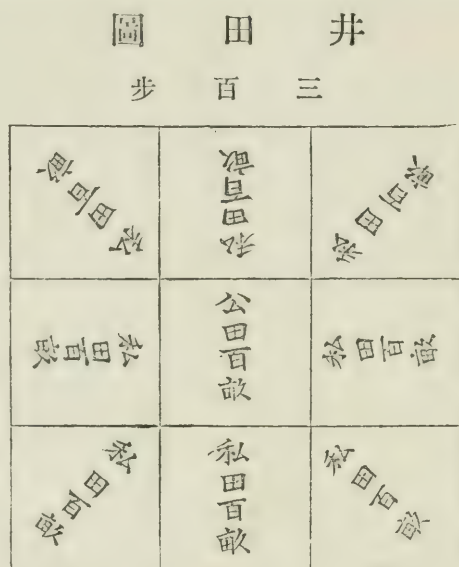 井田圖
三百步
私田百畝
私田百畝
私田百畝
私田百畝
公田百畝
私田百畝
私田百畝
私田百畝
私田百畝